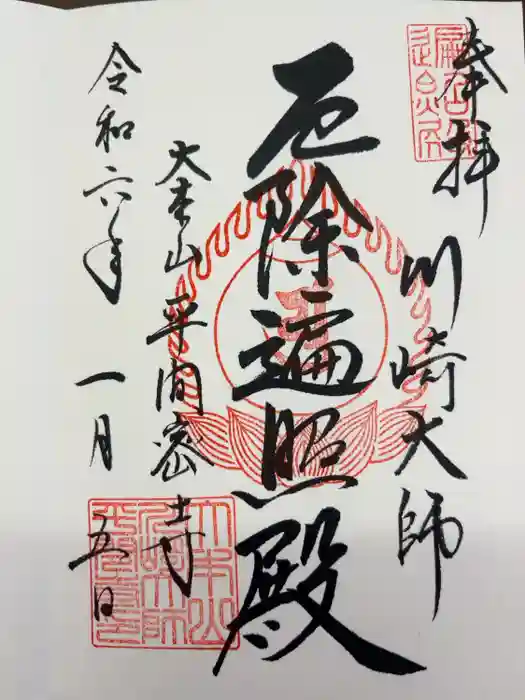 奉拝
川崎大師
厄除遍照殿
大本山平間密寺
令和六年一月五日